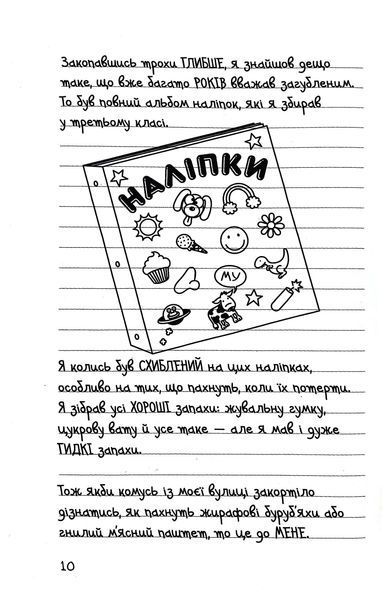 Закопавшись трохи ГЛИБШЕ, я знайшов дещо
таке, що вже багато РОКІВ вважав загубленим.
То був повний альбом наліпок, які я збирав
у третьому класі.
НАЛІПКИ
МУ
Я колись був СХИБЛЕНИЙ на цих наліпках,
особливо на тих, що пахнуть, коли їх потерти.
Я зібрав усі ХОРОШІ запахи: жувальну гумку,
цукрову вату й усе таке — але я мав і дуже
ГИДКІ запахи.
Тож якби комусь із моєї вулиці закортіло
дізнатись, як пахнуть жирафові буруб'яхи або
гнилий м'ясний паштет, то це до МЕНЕ.
10